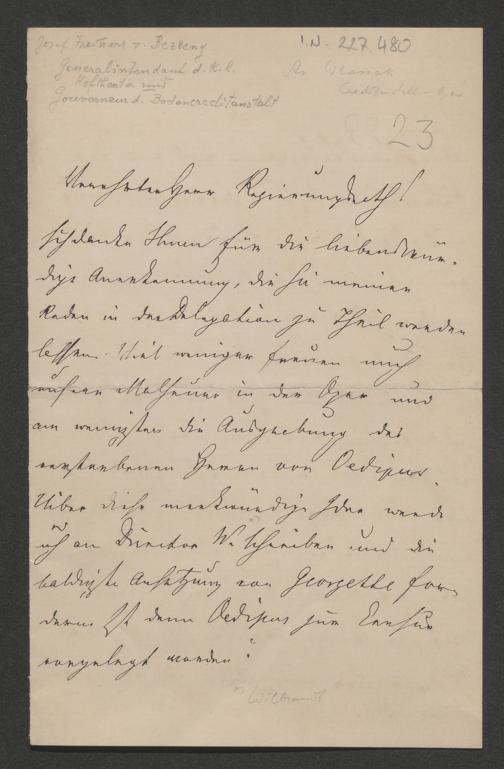 Josef Freiherr v. Bezecny
I.N. 227.480
Generalintendant d. K.K.
Hoftheater und
An Wlassack
Gouverneur d. Bodencreditanstalt
23
Verehrter Herr Regierungsrath!
Ich danke Ihnen für die liebenswür-
dige Anerkennung, die Sie meinen
Reden in der Delegation zu Theil werden
lassen. Viel weniger freuen mich
unsere Malheure in der Oper und
am wenigsten die Ausgrabung des
verstorbenen Herrn von Oedipus.
Über diese merkwürdige Idee werde
ich an Director W. schreiben und die
baldigste Ansetzung von Georgette for-
dern. Ist denn Oedipus zur Censur
vorgelegt worden?
Wilbrandt